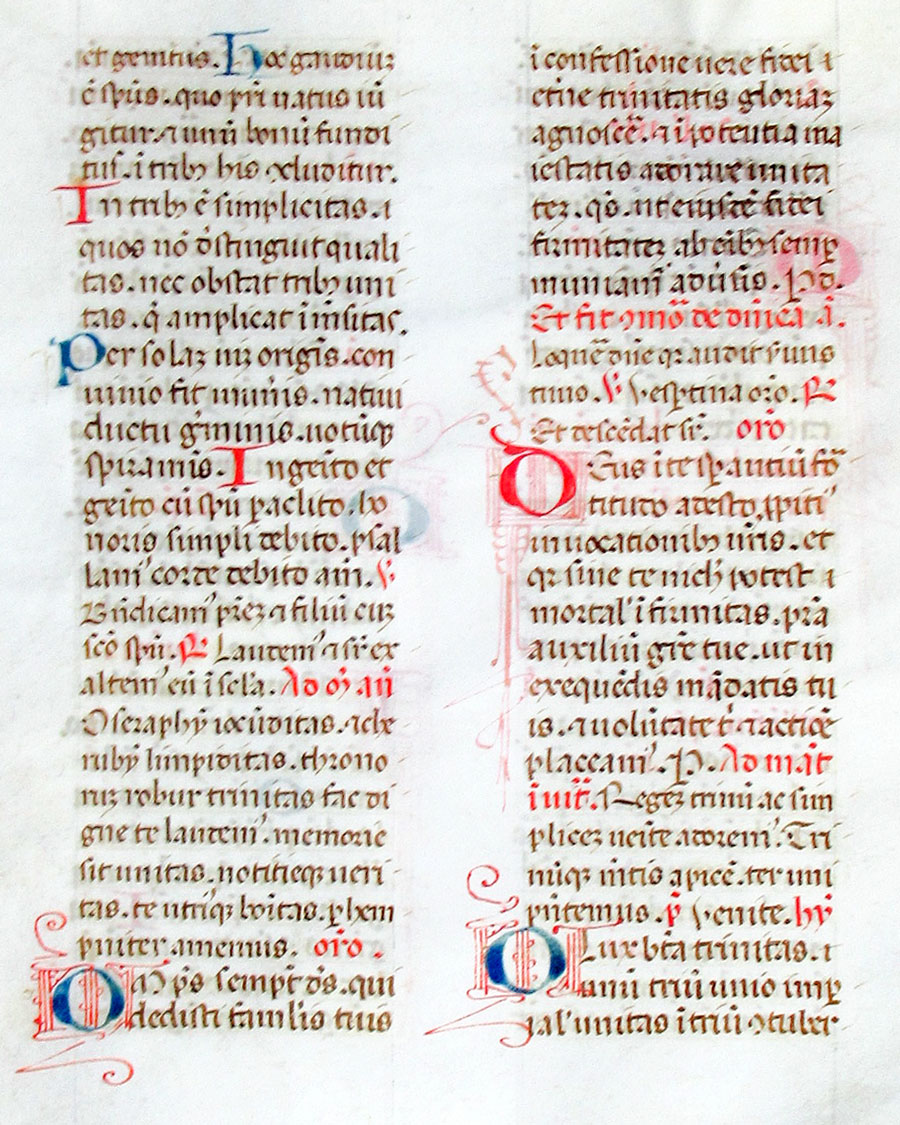 et genitus. Hoc gaudiuz
ē sp̄us. quo pr̄i natus iū
gitur. ⁊ unū bonū fundi
tus. ī trib; his ꝯcluditur.
In trib; ē simplicitas. ⁊
quos nō d̄stinguit quali
tas. nec obstat trib; uni
tas. q̄ amplicat īm̄sitas.
Per solaz uiz origīs. con
uiuio fit numīs. natiui
ductu gͥminis. uotūqꝫ
spiramīs. Ingēito et
geīto cū sp̄u paclito. ho
noris simpli debito. psal
lamꝰ corde debito am̄. ℣
Bn̄dicamꝰ pr̄ez ⁊ filiū cuz
scō sp̄u. ℟ Laudemꝰ ⁊ suꝑex
altemꝰ eū ī sc̄la. Ad m̄ an̄
O seraphȳ iocūditas. ⁊ che
rubȳ limpiditas. throno
ruz robur trinitas fac di
gne te laudemꝰ. memorie
sit unitas. notitieqꝫ ueri
tas. te utriqꝫ boītas. ꝑ hem
pniter amemus. oro.
Om̄ps sempt̄ ds̄. qui
dedisti famul'is tuis
ī confessione uere fidei ⁊
et̄ne trinitatis gloriaz
agnosce͞. ⁊ ī potentia ma
iestatis adorare unita
tez. qs̄. ut eiusde͞ fidei
firmitatez ab oībꝫ semꝑ
muniamꝰ aduīsis. P̄ d.
Et fit ꝯmō de dn̄ica ā.
Loque͞ dn̄e qꝛ audit ẜuus
tuus. ℣ Vesꝑtina oro. ℟
Et desce͞dat suꝑ. oro
Deus ī te speꝛantiū fo
titudo adesto ꝓpitiꝰ
inuocationib; nr̄is. et
qꝛ sine te nich' potest
mortal' īfirmitas. pr̄a
auxiliū gr̄e tue. ut in
exeque͞dis mādatis tu
is. ⁊ uolūtate t' ⁊ actiōe
placeamꝰ. P̄. Ad mat̄
īuit̄. Regez trinū ac sim
plicez uēite adoremꝰ. Tri
nūqꝫ
pn̄temus. p̄ Venite. hȳ
O Lux bt̄a trinitas. ⁊
unū triū unio imꝑ
ial' unitas ī triū ꝯtuber